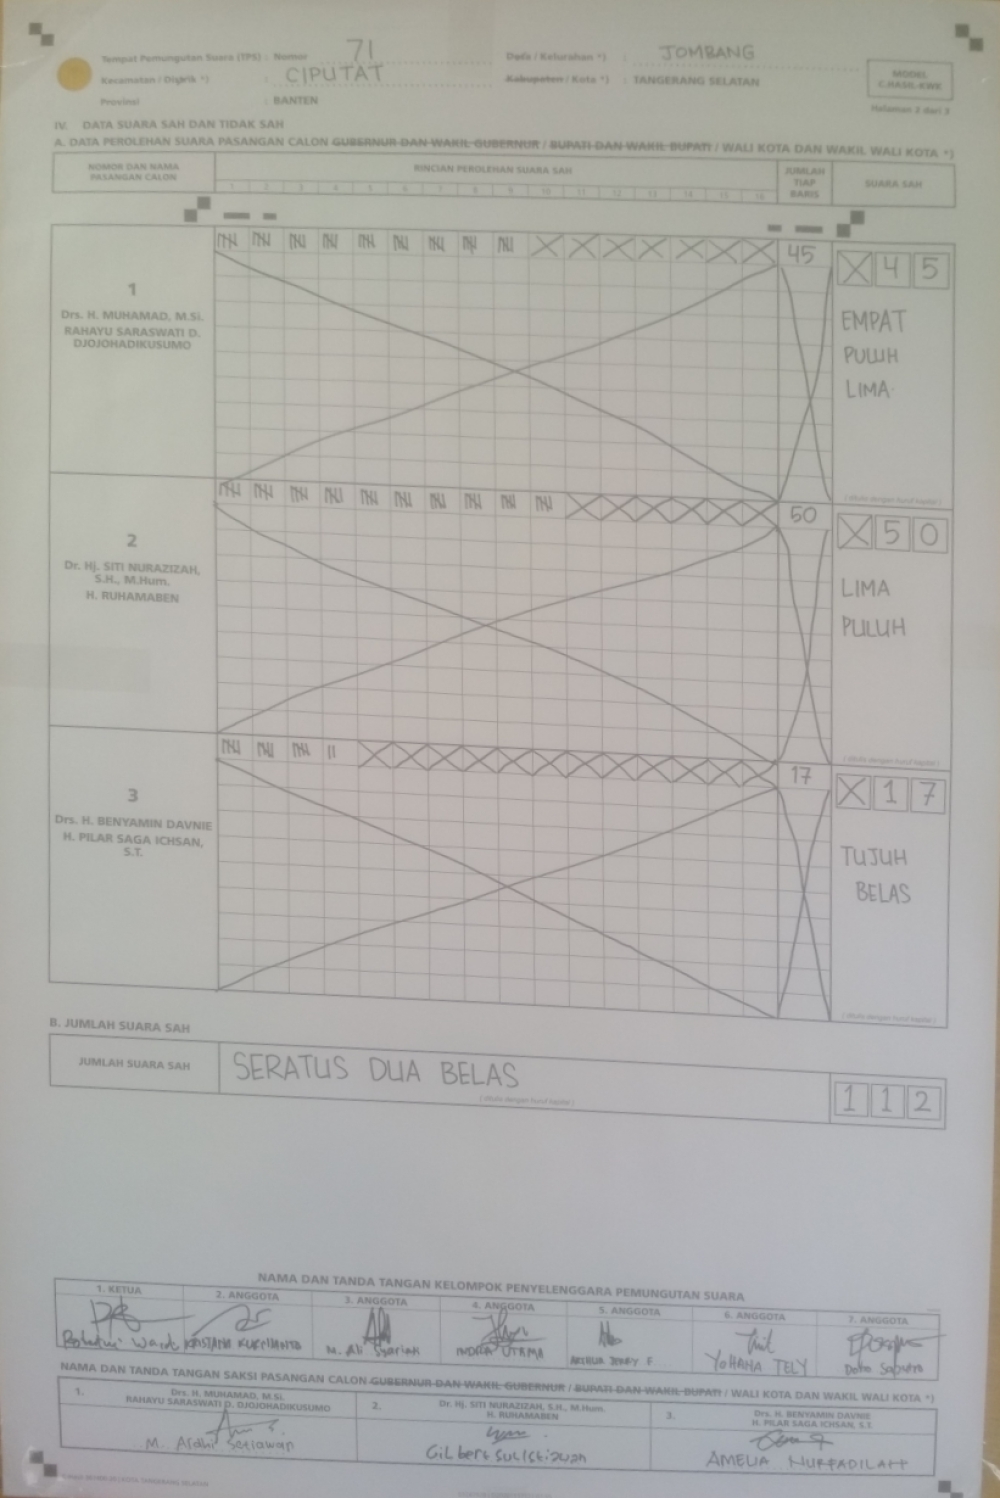 Tempat Pemungutan Suara (TPS) : Nomor 71 Desa / Kelurahan *) : JOMBANG
Kecamatan / Distrik *) : CIPUTAT Kabupaten / Kota *) : TANGERANG SELATAN
Provinsi : BANTEN
MODEL
C.HASIL-KWK
Halaman 2 dari 3
IV. DATA SUARA SAH DAN TIDAK SAH
A. DATA PEROLEHAN SUARA PASANGAN CALON GUBERNUR DAN WAKIL GUBERNUR / BUPATI DAN WAKIL BUPATI / WALI KOTA DAN WAKIL WALI KOTA *)
NOMOR DAN NAMA
PASANGAN CALON
RINCIAN PEROLEHAN SUARA SAH
1 2 3 4 5 6 7 8 9 10 11 12 13 14 15 16
JUMLAH
TIAP
BARIS
SUARA SAH
1
Drs. H. MUHAMAD, M.Si.
RAHAYU SARASWATI D.
DJOJOHADIKUSUMO
45
X 4 5
EMPAT
PULUH
LIMA
(ditulis dengan huruf kapital)
2
Dr. Hj. SITI NURAZIZAH,
S.H., M.Hum.
H. RUHAMABEN
50
X 5 0
LIMA
PULUH
(ditulis dengan huruf kapital)
3
Drs. H. BENYAMIN DAVNIE
H. PILAR SAGA ICHSAN,
S.T.
17
X 1 7
TUJUH
BELAS
(ditulis dengan huruf kapital)
B. JUMLAH SUARA SAH
JUMLAH SUARA SAH SERATUS DUA BELAS 1 1 2
(ditulis dengan huruf kapital)
NAMA DAN TANDA TANGAN KELOMPOK PENYELENGGARA PEMUNGUTAN SUARA
1. KETUA 2. ANGGOTA 3. ANGGOTA 4. ANGGOTA 5. ANGGOTA 6. ANGGOTA 7. ANGGOTA
M. Ali INDRA UTAMA YOHANA TELY
NAMA DAN TANDA TANGAN SAKSI PASANGAN CALON GUBERNUR DAN WAKIL GUBERNUR / BUPATI DAN WAKIL BUPATI / WALI KOTA DAN WAKIL WALI KOTA *)
1. Drs. H. MUHAMAD, M.Si.
RAHAYU SARASWATI D. DJOJOHADIKUSUMO
M. Ardhi Setiawan
2. Dr. Hj. SITI NURAZIZAH, S.H., M.Hum.
H. RUHAMABEN
Gilbert
3. Drs. H. BENYAMIN DAVNIE
H. PILAR SAGA ICHSAN, S.T.
AMELIA NURFADILAH